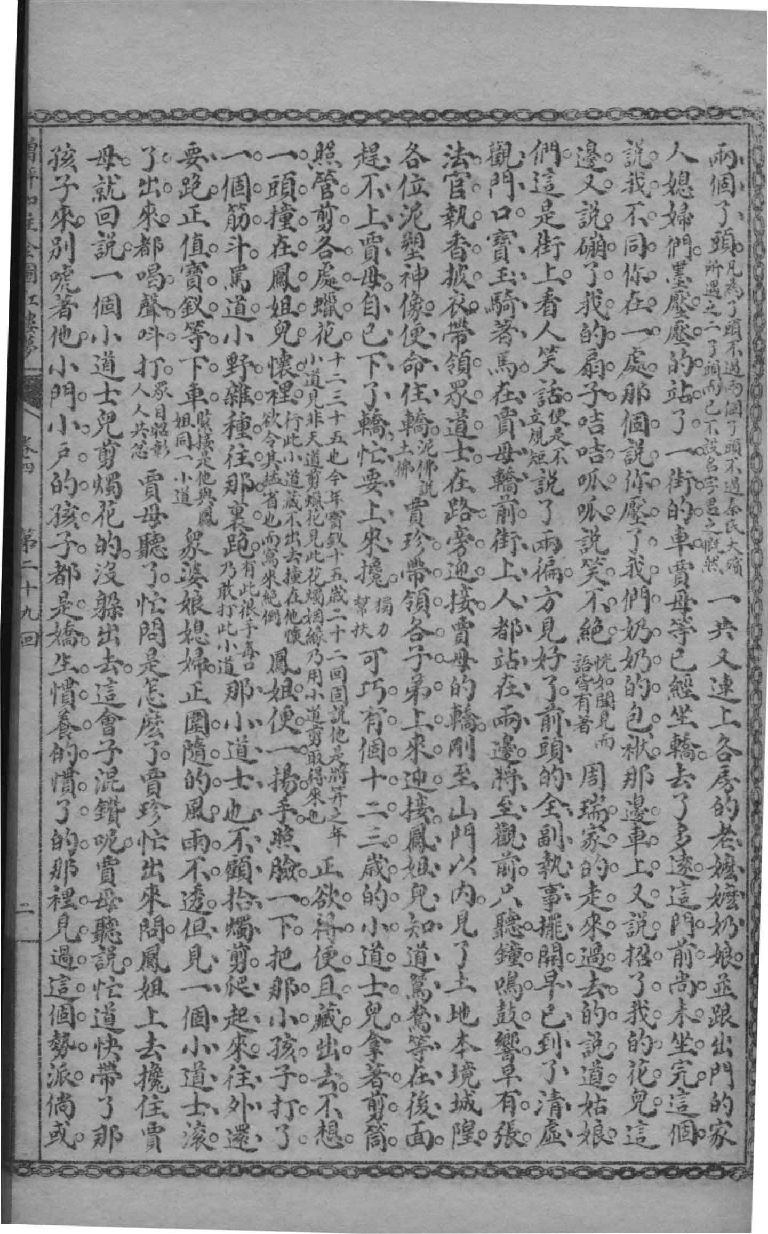 兩個丫頭兄爲丫頭不過兩個丫頭不過秦氏大殯所遇之二丫頭而已不設名字思之慨然一共又連上各房的老嬤嬤奶娘並跟出門的家
人媳婦們黑壓壓的站了一街的車賈母等已經坐轎去了多遠這門前尚未坐完這個
說我不同你在一處那個說你壓了我們奶奶的包袱那邊車上又說招了我的花兒這
邊又說碰了我的扇子咭咭呱呱說笑不絕恍如聞見而語皆有著周瑞家的走來過去的說道姑娘
們這是街上看人笑話使是不立規矩說了兩徧方見好了前頭的全副執事擺開早已到了清虛
觀門口寶玉騎著馬在賈母轎前街上人都站在兩邊將至觀前只聽鐘鳴鼓響早有張
法官執香披衣帶領眾道士在路旁迎接賈母的轎剛至山門以內見了土地本境城隍
各位泥塑神像便命住轎泥佛說土佛賈珍帶領各子弟上來迎接鳳姐兒知道鴛鴦等在後面
趕不上賈母自己下了轎忙要上來攙獨力幫扶可巧有個十二三歲的小道士兒拿著剪筒
照管剪各處蠟花十二三十五也今年寶釵十五歲二十二回固說他是將笄之年小道見非天道剪蠟花見此花燭姻緣乃用小道剪取得來也正欲得便且藏出去不想
一頭撞在鳳姐兒懷裡行此小道藏不出去撞在他懷欲令其猛省也而寫來絕倒鳳姐便一揚手照臉一下把那小孩子打了
一個筋斗罵道小野雜種往那裏跑有此狠手毒口乃敢打此小道那小道士也不顧拾燭剪爬起來往外還
要跑正值寶釵等下車賅接是他與鳳姐同一小道眾婆娘媳婦正圍隨的風雨不透但見一個小道士滾
了出來都喝聲叫打眾目昭彰人人共忿賈母聽了忙問是怎麽了賈珍忙出來問鳳姐上去攙住賈
母就回說一個小道士兒剪燭花的沒躱出去這會子混鑽呢賈母聽說忙道快帶了那
孩子來別唬著他小門小戶的孩子都是嬌生慣養的慣了的那裡見過這個勢派倘或
增評加註全圖紅樓夢 卷四 第二十九回 二